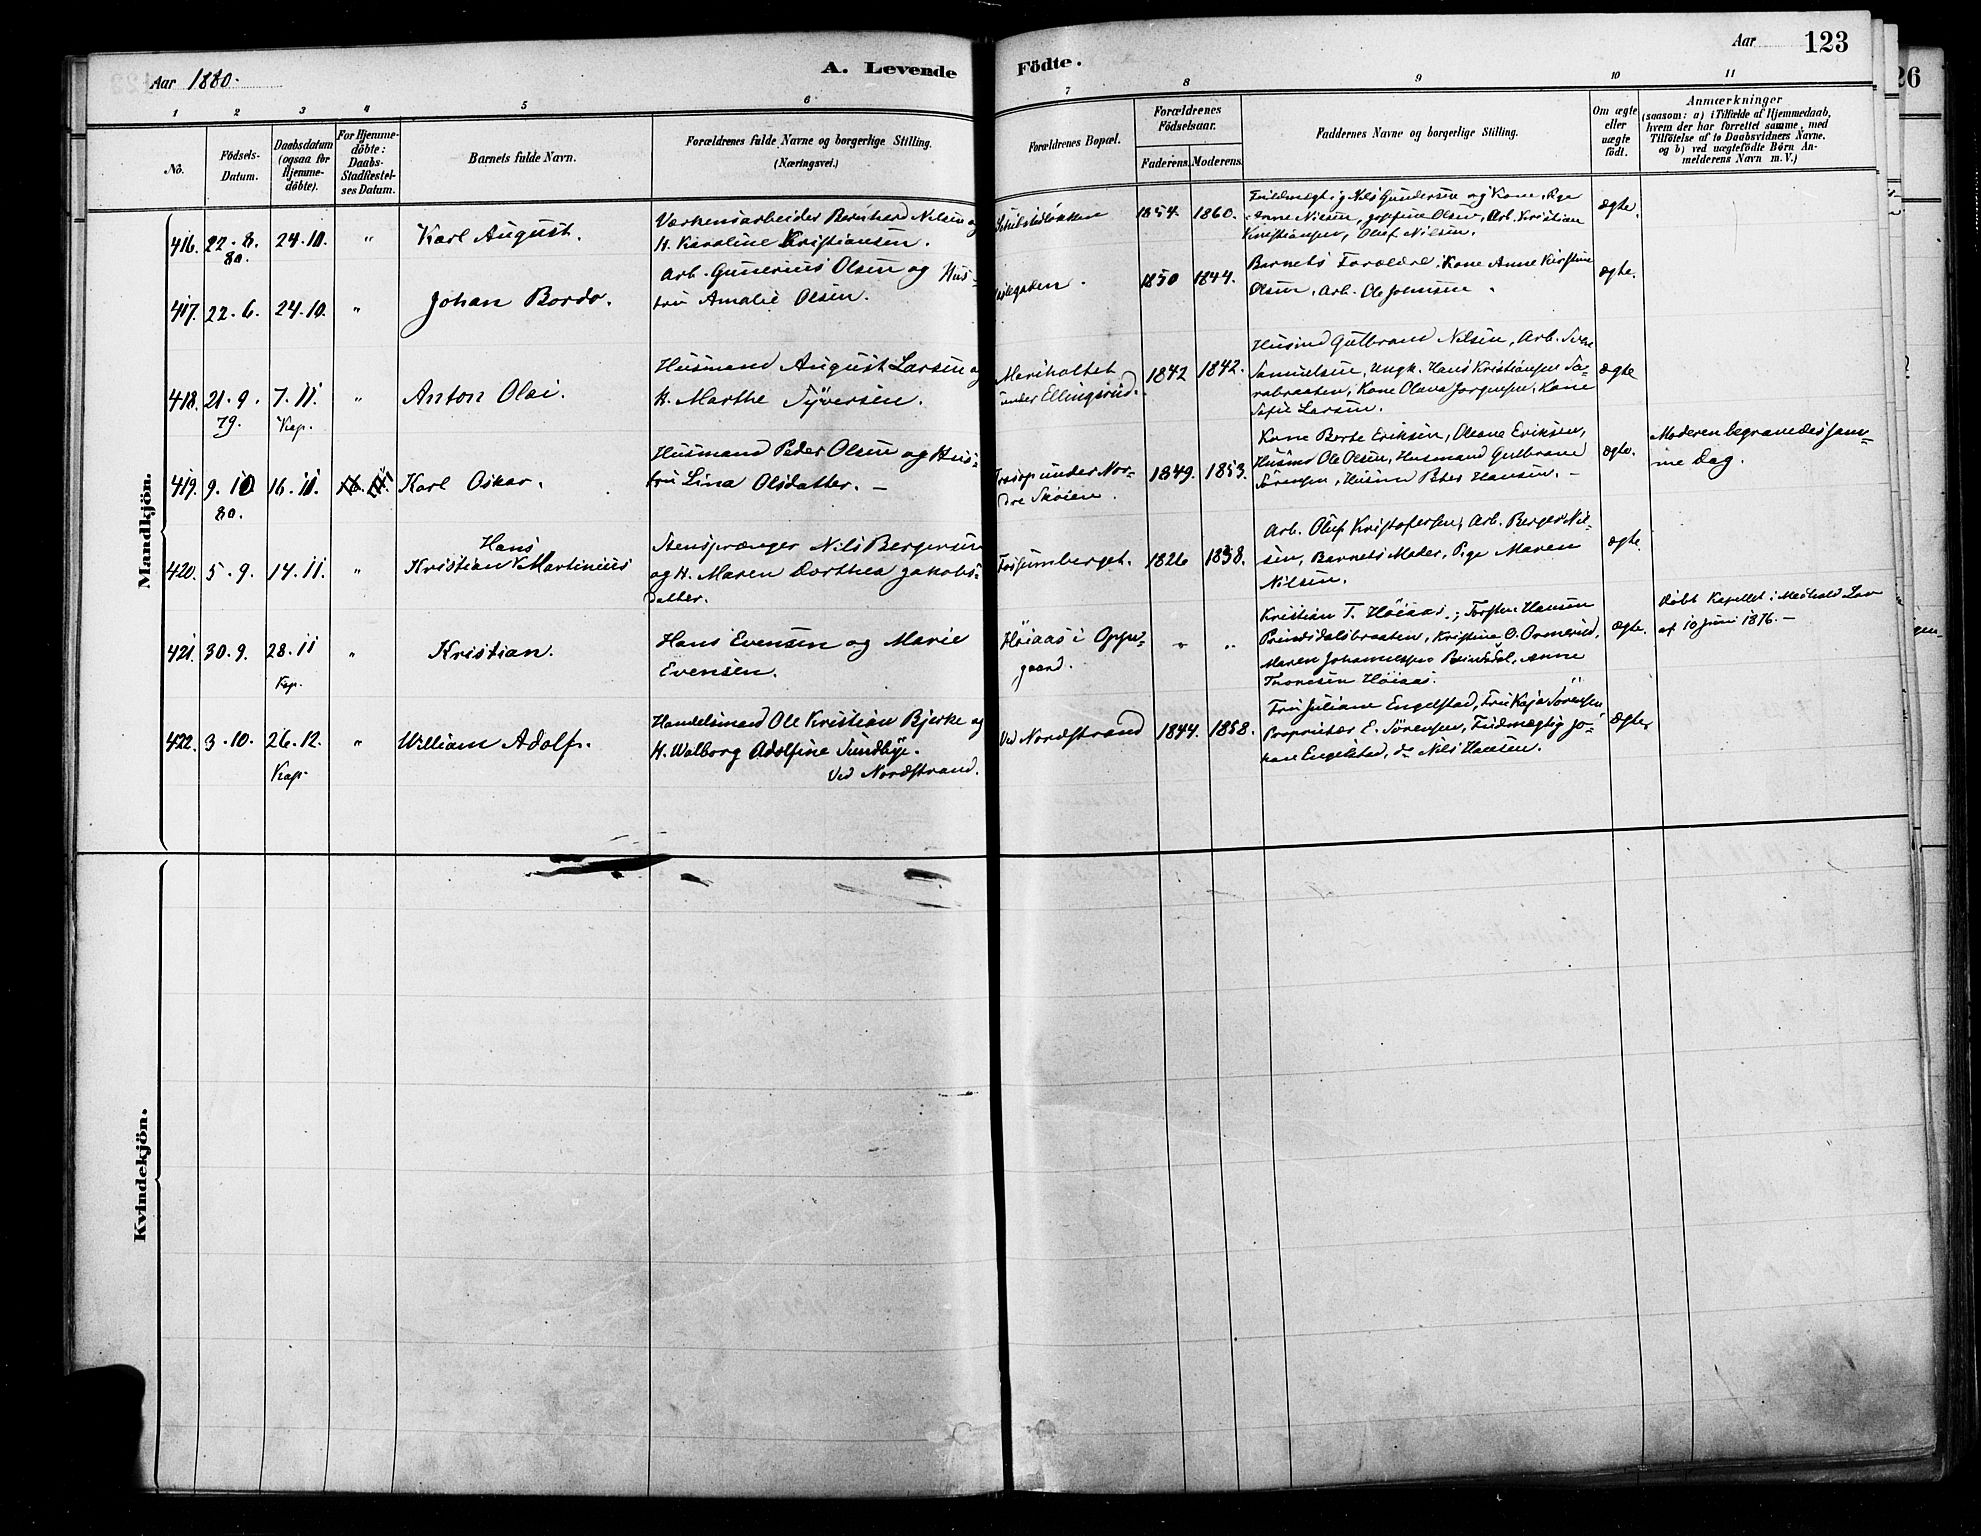 Aar 1880.
A. Levende Födte.
Aar
123
26
1 2 3 4 5 6 7 8 9 10 11
No.
Födsels-
Datum.
Daabsdatum
(ogsaa for
Hjemme-
döbte).
For Hjemme-
döbte:
Daabs-
Stadfæstel-
ses Datum.
Barnets fulde Navn.
Forældrenes fulde Navne og borgerlige Stilling.
(Næringsvei.)
Forældrenes Bopæl.
Forældrenes
Födselsaar.
Faderens. Moderens.
Faddernes Navne og borgerlige Stilling.
Om ægte
eller
uægte
födt.
Anmærkninger
(saasom: a) i Tilfælde af Hjemmedaab,
hvem der har forrettet samme, med
Tilföielse af to Daabsvidners Navne.
og b) ved uægtefödte Börn An-
melderens Navn m. V.)
Mandkjön.
416. 22. 8.
80.
24. 10. " Karl August.
Værkensarbeider Bernhard Nilsen og
H. Karoline Kristiansen.
1854. 1860.
Fuldmægtig Nils Gundersen og Kone, Pige
Anne Nilsen, Josefine Olsen, Arb. Kristian
Kristiansen, Oluf Nilsen.
ægte.
417. 22. 6. 24. 10. " Johan Bordo.
Arb. Gunerius Olsen og Hus-
tru Amalie Olsen.
1850 1844.
Barnets Forældre, Kone Anne Kirstine
Olsen, Arb. Ole Johnsen.
ægte.
418. 21. 9.
79.
7. 11.
Kap.
" Anton Olai.
Husmand August Larsen og
H. Marthe Syversen.
Mariholtet
under Ellingsrud.
1842 1842.
Husmd Gulbrand Nilsen, Arb.
Samuelsen, Ungk. Hans Kristiansen Sa-
rabraaten, Kone Olava Jørgensen, Kone
Sofie Larsen.
ægte
419. 9. 10
80.
16. 11. Karl Oskar.
Husmand Peder Olsen og Hus-
tru Lina Olsdatter. —
under Nor-
dre Skøien.
1849. 1853.
Kone Berte Eriksen, Oleane Eriksen,
Husmd Ole Olsen, Husmand Gulbrand
Sørensen, Husmd Hansen. —
ægte.
Moderen begravedes sam-
me Dag.
420. 5. 9. 14. 11. "
Hans
Kristian Martinius
Stensprænger Nils Bergersen
og H. Maren Dorthea Jakobs-
datter.
Fossumberget. 1826 1838.
Arb. Oluf Kristofersen, Arb. Berger Nil-
sen, Barnets Moder, Pige Maren
Nilsen.
ægte.
421. 30. 9. 28. 11
Kap.
" Kristian.
Hans Evensen og Marie
Evensen.
Høiaas i Oppe-
gaard.
" "
Kristian T. Høiaas, Torsten Hansen
Prinsdalsbraaten, Kristine O. Ormerud,
Maren Johannessen Prinsdal, Anne
Thoresen Høiaas.
ægte.
Døbt Kapellet i Medhold Lov
af 10 Juni 1876. —
422. 3. 10. 26. 12.
Kap.
" William Adolf.
Handelsmand Ole Kristian Bjerke og
H. Walborg Adolfine Sundbye.
Ved Nordstrand.
Ved Nordstrand 1844. 1858.
Fru Juliane Engelstad, Fru Kaja Sørensen,
Proprietær E. Sørensen, Fuldmægtig Jo-
han Engelstad, do Nils Hansen.
ægte
Kvindekjön.